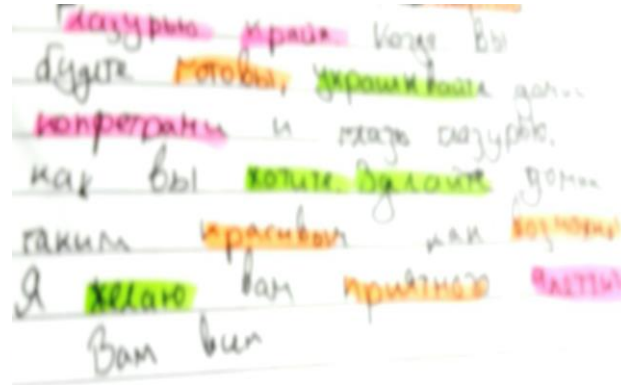 глазурью крайя когда вы
будете готовы, украшивайте дом
конфетрами и глазурью.
как вы хотите. Делайте дома
таким красивым как
Я желаю вам приятного
Вам всем